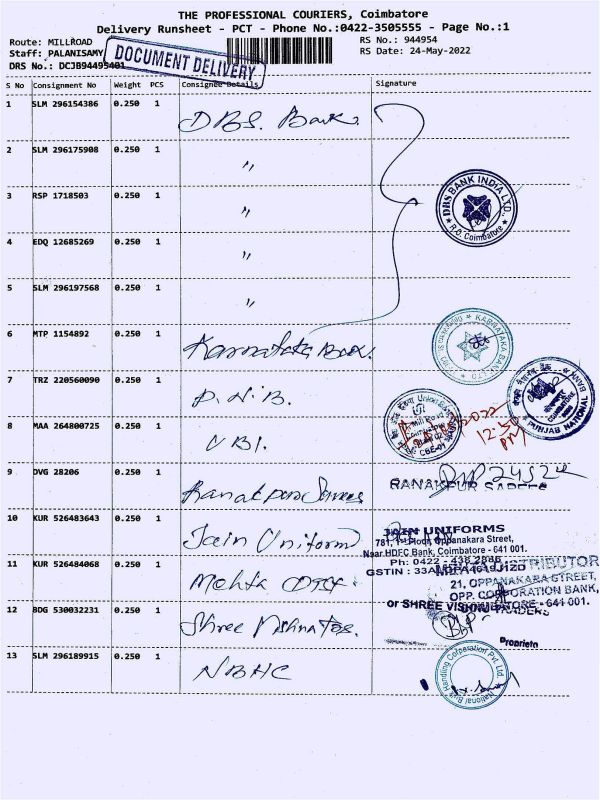 THE PROFESSIONAL COURIERS, Coimbatore
Delivery Runsheet - PCT - Phone No.:0422-3505555 - Page No.:1
Route: MILLROAD
RS No.: 944954
Staff: PALANISAMY
RS Date: 24-May-2022
DRS No.: DCJB94495401
DOCUMENT DELIVERY
S No Consignment No Weight PCS Consignee Details Signature
1 SLM 296154386 0.250 1 DBS. Bank.
2 SLM 296175908 0.250 1 "
3 RSP 1718503 0.250 1 "
4 EDQ 12685269 0.250 1 "
5 SLM 296197568 0.250 1 "
DBS BANK INDIA LTD.,
R.O. Coimbatore
6 MTP 1154892 0.250 1 Karnataka Bank.
KARNATAKA BANK LTD
7 TRZ 220560090 0.250 1 P.N.B.
PUNJAB NATIONAL BANK
COIMBATORE
8 MAA 264800725 0.250 1 UBI.
Union Bank
Mill Road
12:30
PM
9 DVG 28206 0.250 1 Ranakpur Sarees
RANAKPUR SAREES
10 KUR 526483643 0.250 1 Jain Uniform
JAIN UNIFORMS
781, 1st Floor, Oppanakara Street,
Near HDFC Bank, Coimbatore - 641 001.
Ph: 0422 - 438 2886
11 KUR 526484068 0.250 1 Mehta
GSTIN :
DISTRIBUTOR
21, OPPANAKARA STREET,
OPP. CORPORATION BANK,
COIMBATORE - 641 001.
12 BDG 530032231 0.250 1 Shree
or SHREE
TRADERS
Proprietor
13 SLM 296189915 0.250 1 NBHC
National Bulk Handling Corporation Pvt. Ltd.